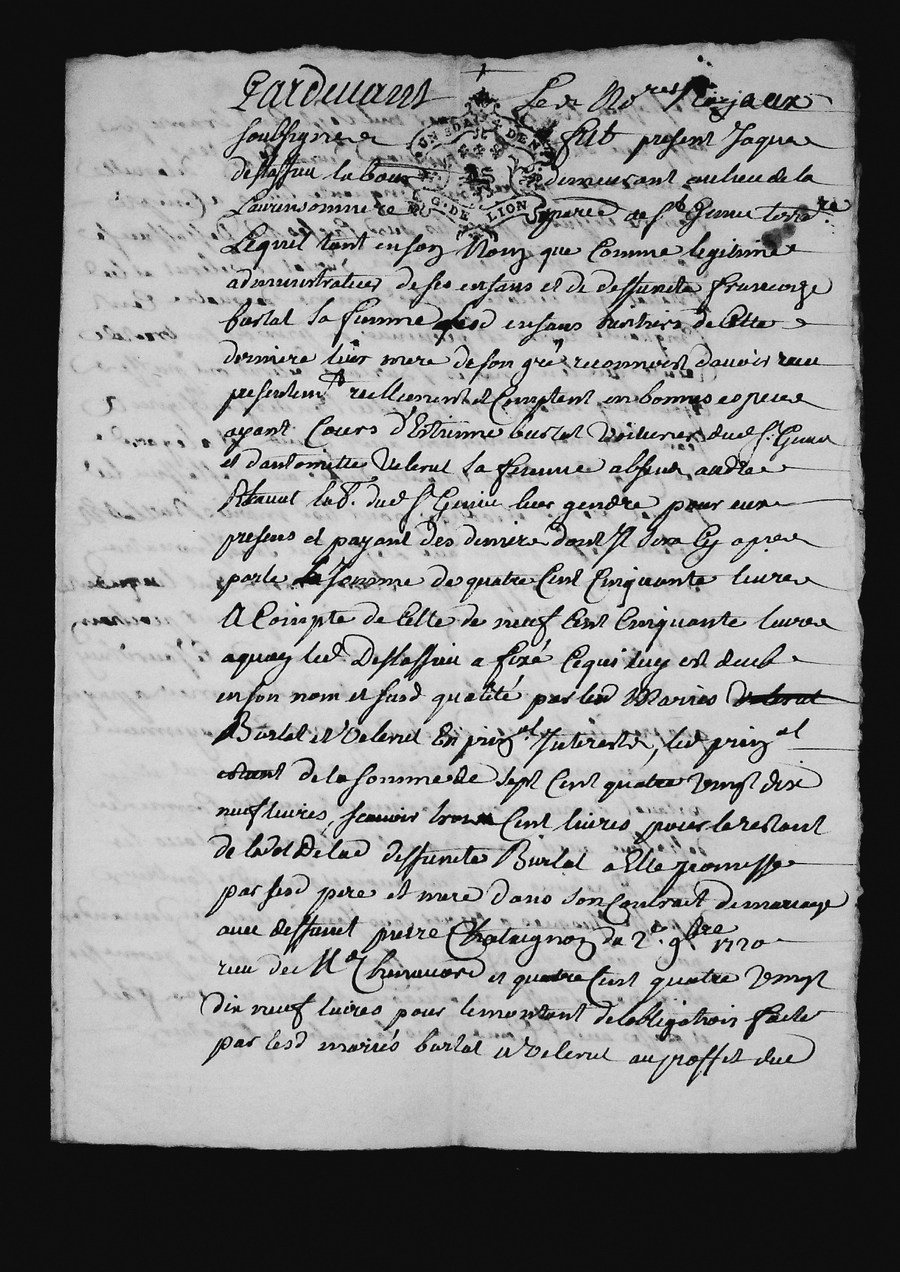 Pardevant Les Nores Royaux
soubsignes fut present Jaque
deflassieu labour demeurant au lieu de la
UN SOL DEN G. DE LION
Laurensonniere parre de St Genis terrere
Lequel tant en son Nom que comme legitime
administrateur de ses enfans et de deffuncte Francoize
burlat sa femme lesd enfans heritiers de Cette
derniere leur mere de son gré reconnoist davoir reçu
presentemt reellement et Comptent en bonnes especes
ayant Cours d'Estienne burlat Voiturier dud St Genis
et d'antoinette Velerut sa femme absens andre
labr. dud St Genis leur gendre pour eux
present et payant des deniers dont Il sera Cy apres
parlé la somme de quatre Cent Cinquante livres
A Compte de Celle de neuf Cent Cinquante livres
a quoy led Deflassieu a fixé Ce qui luy est deub
en son nom et susd qualité par lesd Mariés Velerut
Burlat et Velerut En prinal Interests, led prinal
estant de la somme de sept Cent quatre vingt dix
neuf livres, scavoir trois Cent livres pour le restant
de la dot de lad deffuncte Burlat a Elle promise
par sesd pere et mere dans son Contract de mariage
avec deffunct pierre Chataignon du 2e 9bre 1720
reçu de Me et quatre Cent quatre vingt
dix neuf livres pour le montant de lobligation faicte
par lesd mariés burlat et Velerut au proffit dud